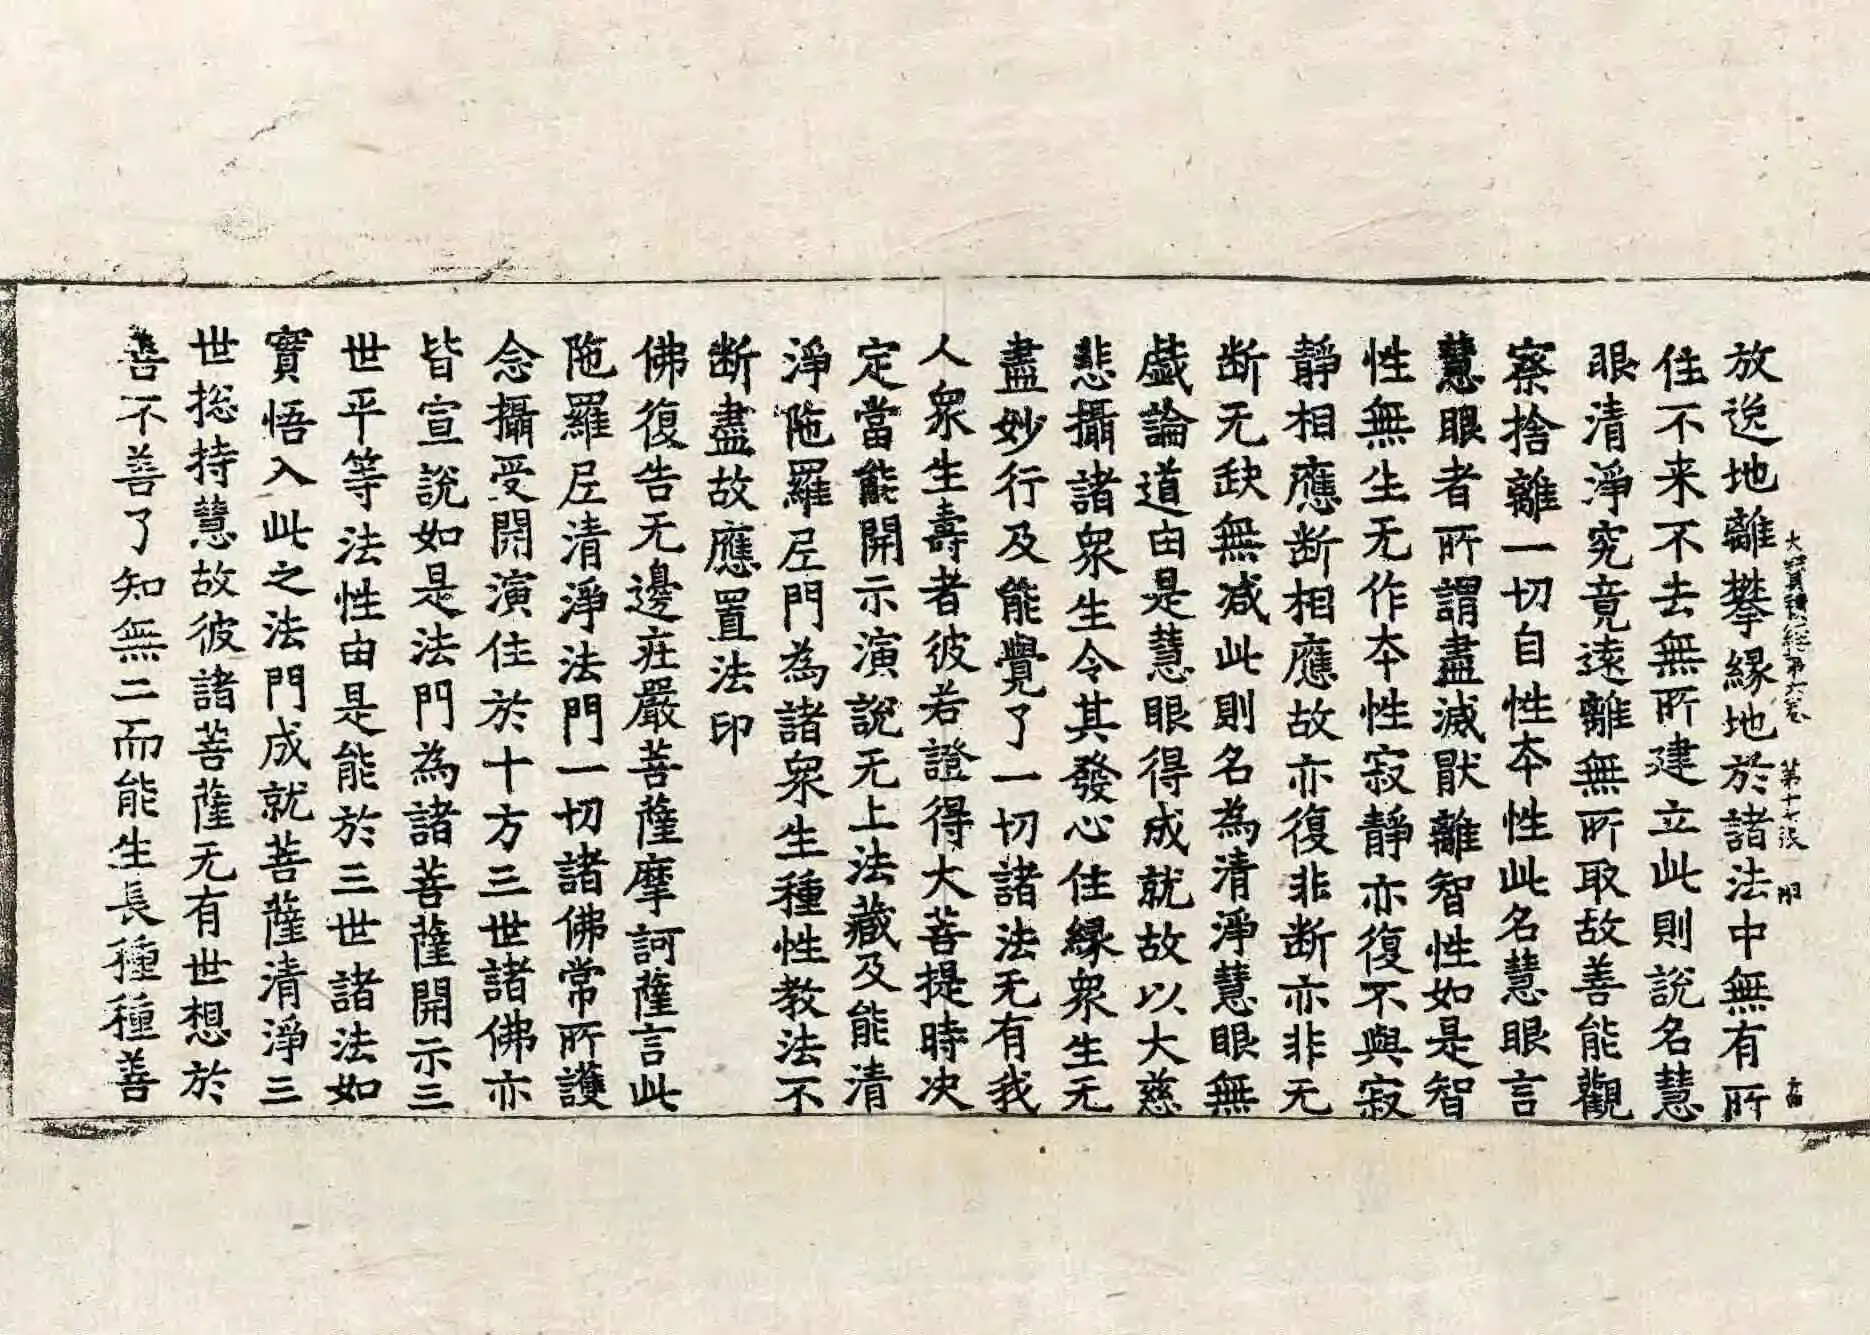 大寶積經第六卷　第十七張　服
放逸地離攀縁地於諸法中無有所
住不来不去無所建立此則說名慧
眼清淨究竟遠離無所取故善能觀
察捨離一切自性本性此名慧眼言
慧眼者所謂盡滅猒離智性如是智
性無生无作本性寂靜亦復不與寂
靜相應断相應故亦復非断亦非无
断无缺無减此則名為清淨慧眼無
戯論道由是慧眼得成就故以大慈
悲攝諸衆生令其發心住縁衆生无
盡妙行及能覺了一切諸法无有我
人衆生壽者彼若證得大菩提時决
定當能開示演說无上法藏及能清
淨陁羅尼門為諸衆生種性教法不
断盡故應置法印
佛復告无邊莊嚴菩薩摩訶薩言此
陁羅尼清淨法門一切諸佛常所護
念攝受開演住於十方三世諸佛亦
皆宣說如是法門為諸菩薩開示三
世平等法性由是能於三世諸法如
實悟入此之法門成就菩薩清淨三
世捴持慧故彼諸菩薩无有世想於
善不善了知無二而能生長種種善